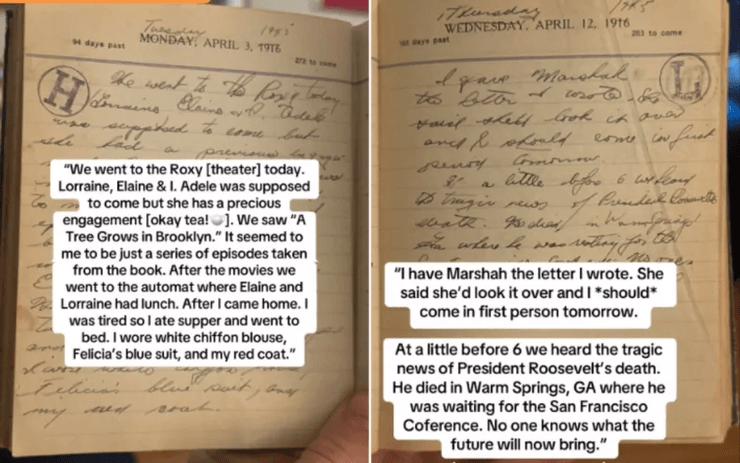 Tuesday 1945
94 days past MONDAY, APRIL 3, 1916 272 to come
H
We went to the Roxy today
Lorraine, Elaine & I. Adele
was supposed to come but
she had a previous
"We went to the Roxy [theater] today.
Lorraine, Elaine & I. Adele was supposed
to come but she has a precious
engagement [okay tea!☕]. We saw "A
Tree Grows in Brooklyn." It seemed to
me to be just a series of episodes taken
from the book. After the movies we
went to the automat where Elaine and
Lorraine had lunch. After I came home. I
was tired so I ate supper and went to
bed. I wore white chiffon blouse,
Felicia's blue suit, and my red coat."
Felicia's blue suit, and
my red coat.
Thursday 1945
days past WEDNESDAY, APRIL 12, 1916 263 to come
L
I gave Marshah
the letter I wrote. She
said she'll look it over
and I should come in first
period tomorrow.
At a little before 6 we heard
the tragic news of President Roosevelt's
death. He died in Warm Springs
Ga where he was resting for the
"I have Marshah the letter I wrote. She
said she'd look it over and I *should*
come in first person tomorrow.
At a little before 6 we heard the tragic
news of President Roosevelt's death.
He died in Warm Springs, GA where he
was waiting for the San Francisco
Coference. No one knows what the
future will now bring."